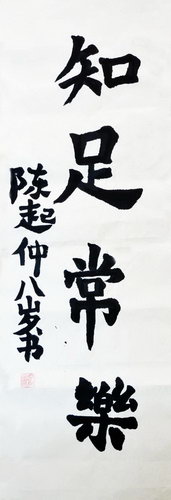 知足常樂
陈起仲八岁书